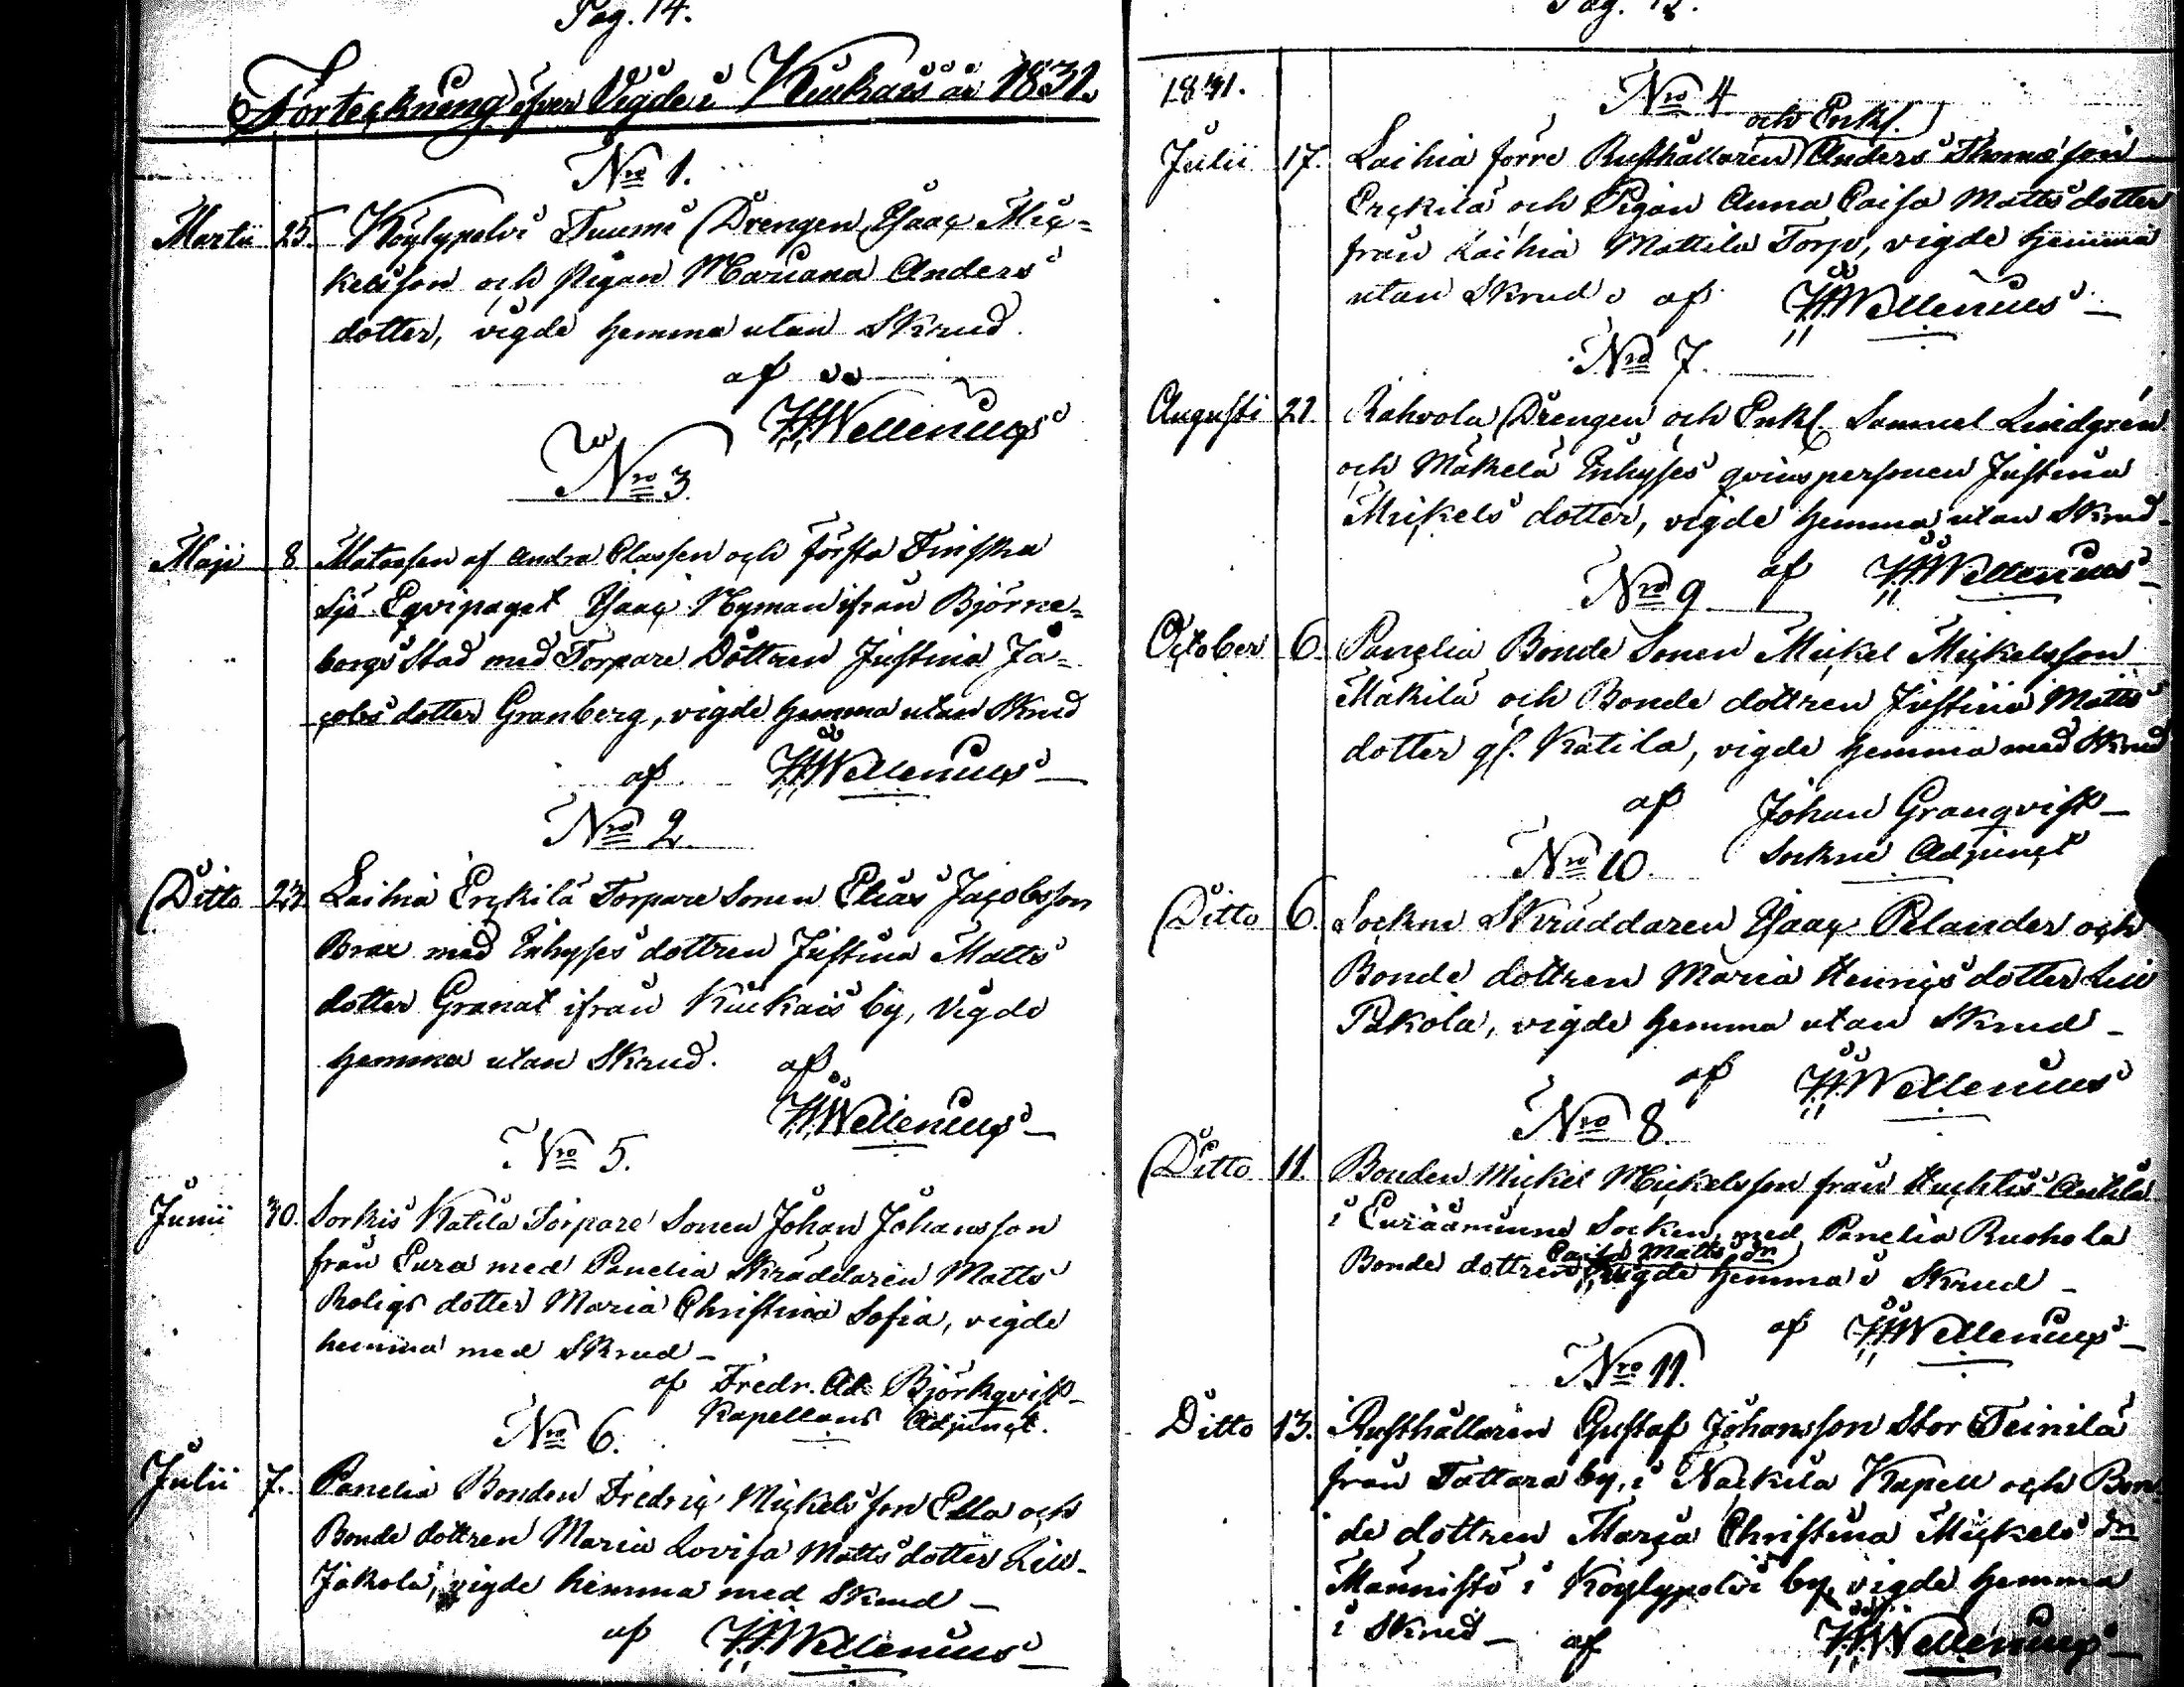 Pag. 14.
Förteckning öfver Vigde i Kiukais år 1831.
Nro 1.
Martii 25. Köylypolvi Tuumi Drengen Isaac Mic-
kelsson och Pigan Mariana Anders
dotter, vigde hemma utan Skrud.
af
HWellenius
Nro 3
Maji 8 Matrosen af andra Classen och första Finska
Sjö Eqvipaget Isaac Nyman ifrån Björne-
borgs Stad med Torpare Dottren Justina Ja-
cobs dotter Granberg, vigde hemma utan Skrud
af HWellenius
Nro 2.
Ditto 23. Laihia Erckilä Torpare Sonen Elias Jacobsson
Brax med Inhyses dottren Justina Matts
dotter Granat ifrån Kiukais by, Vigde
hemma utan Skrud. af
HWellenius
Nro 5.
Junii 30. Sorkis Katila Torpare Sonen Johan Johansson
från Eura med Panelia Skräddaren Matts
Roligs dotter Maria Christina Sofia, vigde
hemma med Skrud
af Fredr. Ad. Björkqvist
Kapellans Adjunct.
Nro 6.
Julii 7. Panelia Bonden Fredric Mickelsson Ella och
Bonde dottren Maria Lovisa Matts dotter Lill-
Jakola, vigde hemma med Skrud
af HWellenius
1831.
Nro 4
och Enkl.
Julii 17. Laihia förre Rusthållaren Anders Thomasson
Erckilä och Pigan Anna Caisa Matts dotter
från Laihia Mattila Torp, vigde hemma
utan Skrud af HWellenius
Nro 7.
Augusti 21. Rahvola Drengen och Enkl. Samuel Lindgrén
och Mäkelä Inhyses qvinspersonen Justina
Mickels dotter, vigde hemma utan Skrud
af HWellenius
Nro 9
October 6. Panelia Bonde Sonen Mickel Mickelsson
Mäkilä och Bonde dottren Justina Matts
dotter gl. Katila, vigde hemma med Skrud
af Johan Granqvist
Sockne Adjunct
Nro 10.
Ditto 6. Sockne Skräddaren Isaac Pelander och
Bonde dottren Maria Henrics dotter Lill
Pakola, vigde hemma utan Skrud
af HWellenius
Nro 8.
Ditto 11. Bonden Mickel Mickelsson från Huchtis Antila
i Euraåminne Socken, med Panelia Ruohola
Caisa Matts dr
Bonde dottren vigde hemma i Skrud
af HWellenius
Nro 11.
Ditto 13. Rusthållaren Gustaf Johansson Stor Teinilä
från Tattara by, i Nackila Kapell och Bon
de dottren Maria Christina Mickels dr
Männistö i Köylypolvi by, vigde hemma
i Skrud af HWellenius